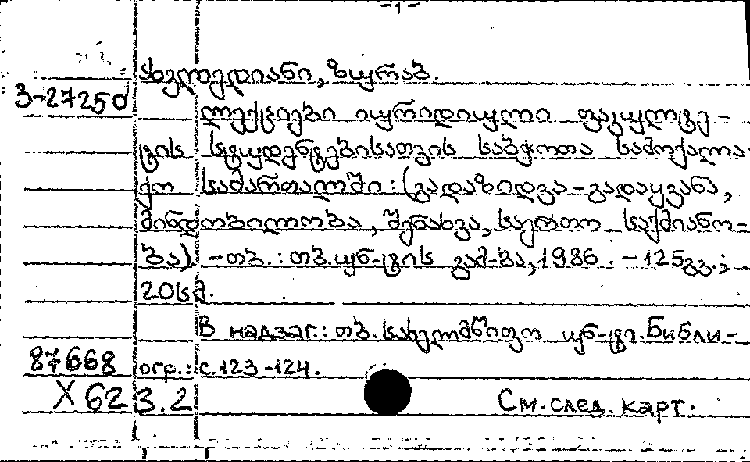 -1-
ახვლედიანი, ზურაბ.
3-27250
ლექციები იურიდიული ფაკულტე-
ტის სტუდენტებისათვის საბჭოთა სამოქალა-
ქო სამართალში: (გადაზიდვა-გადაყვანა,
მინდობილობა, შენახვა, საერთო საქმიანო-
ბა). -თბ.: თბ. უნ-ტის გამ-ბა, 1986. -125გვ.;
20სმ.
В надзаг: თბ. სახელმწიფო უნ-ტი. Библи-
87668 огр.: с.123-124.
X 623.2 См. след. карт.